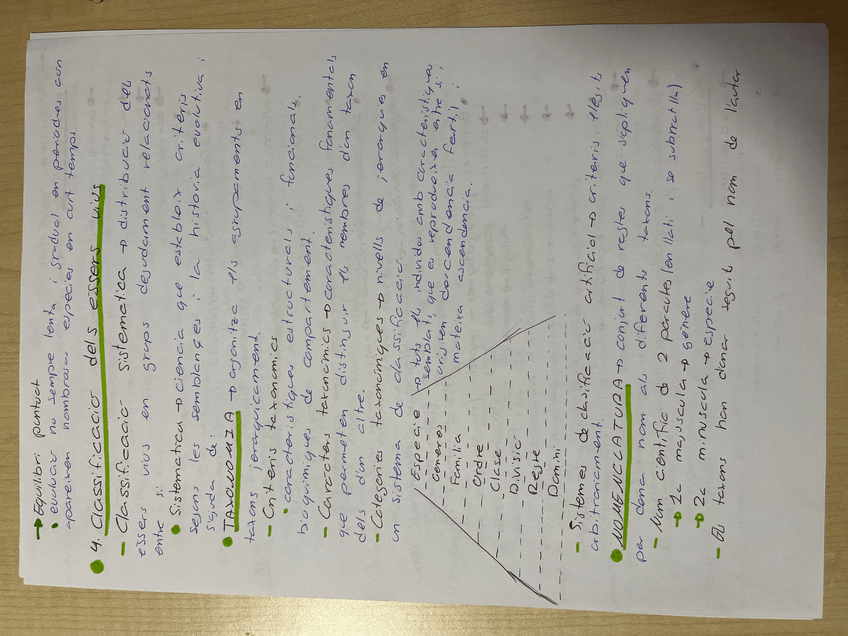 → Equilibri puntuat
• evolucio no sempre lenta i gradual en periodes con
apareixen nombroses especies en curt temps.
4. Classificacio dels essers vius
- Classificacio sistematica → distribucio dels
essers vius en grups degudament relacionats
entre si
• Sistematica → ciencia que estableix criteris
segons les semblançes i la historia evolutiva i
siguda de:
• TAXONOMIA → organitza els agrupaments en
taxons jerarquicament.
- Criteris taxonomics
• caracteristiques estructurals i funcionals,
bioquimiques de comportament.
- Caracters taxonomics → caracteristiques fonamentals
que permeten distinguir els membres d'un taxon
dels d'un altre.
- Categories taxonomiques → nivells de jerarquies en
un sistema de classificacio
Especie → tots els individus amb caracteristiques
semblats, que es reprodueixen entre si i
originen descendencia fertil i
mateixa ascendencia.
Generes
Familia
Ordre
Clase
Divisio
Regne
Domini
- Sistemes de clasificacio artificial → criteris elegits
arbitrariament.
• NOMENCLATURA → conjunt de regles que s'apliquen
per dona nom als diferents taxons.
- Nom cientific de 2 paraules (en llati i se subratlla)
→ 1a majuscula → genere
→ 2a minuscula → especie
- Els taxons han d'anar seguits pel nom de l'autor